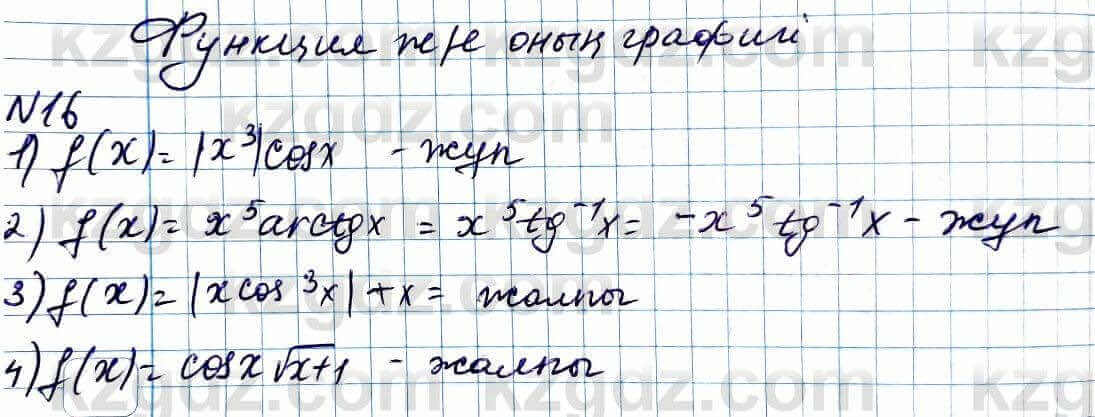 Функция және оның графигі
N16
1) f(x) = |x³|cosx - жұп
2) f(x) = x⁵arctgx = x⁵tg⁻¹x = -x⁵tg⁻¹x - жұп
3) f(x) = |xcos³x| + x = жалпы
4) f(x) = cosx√x+1 - жалпы